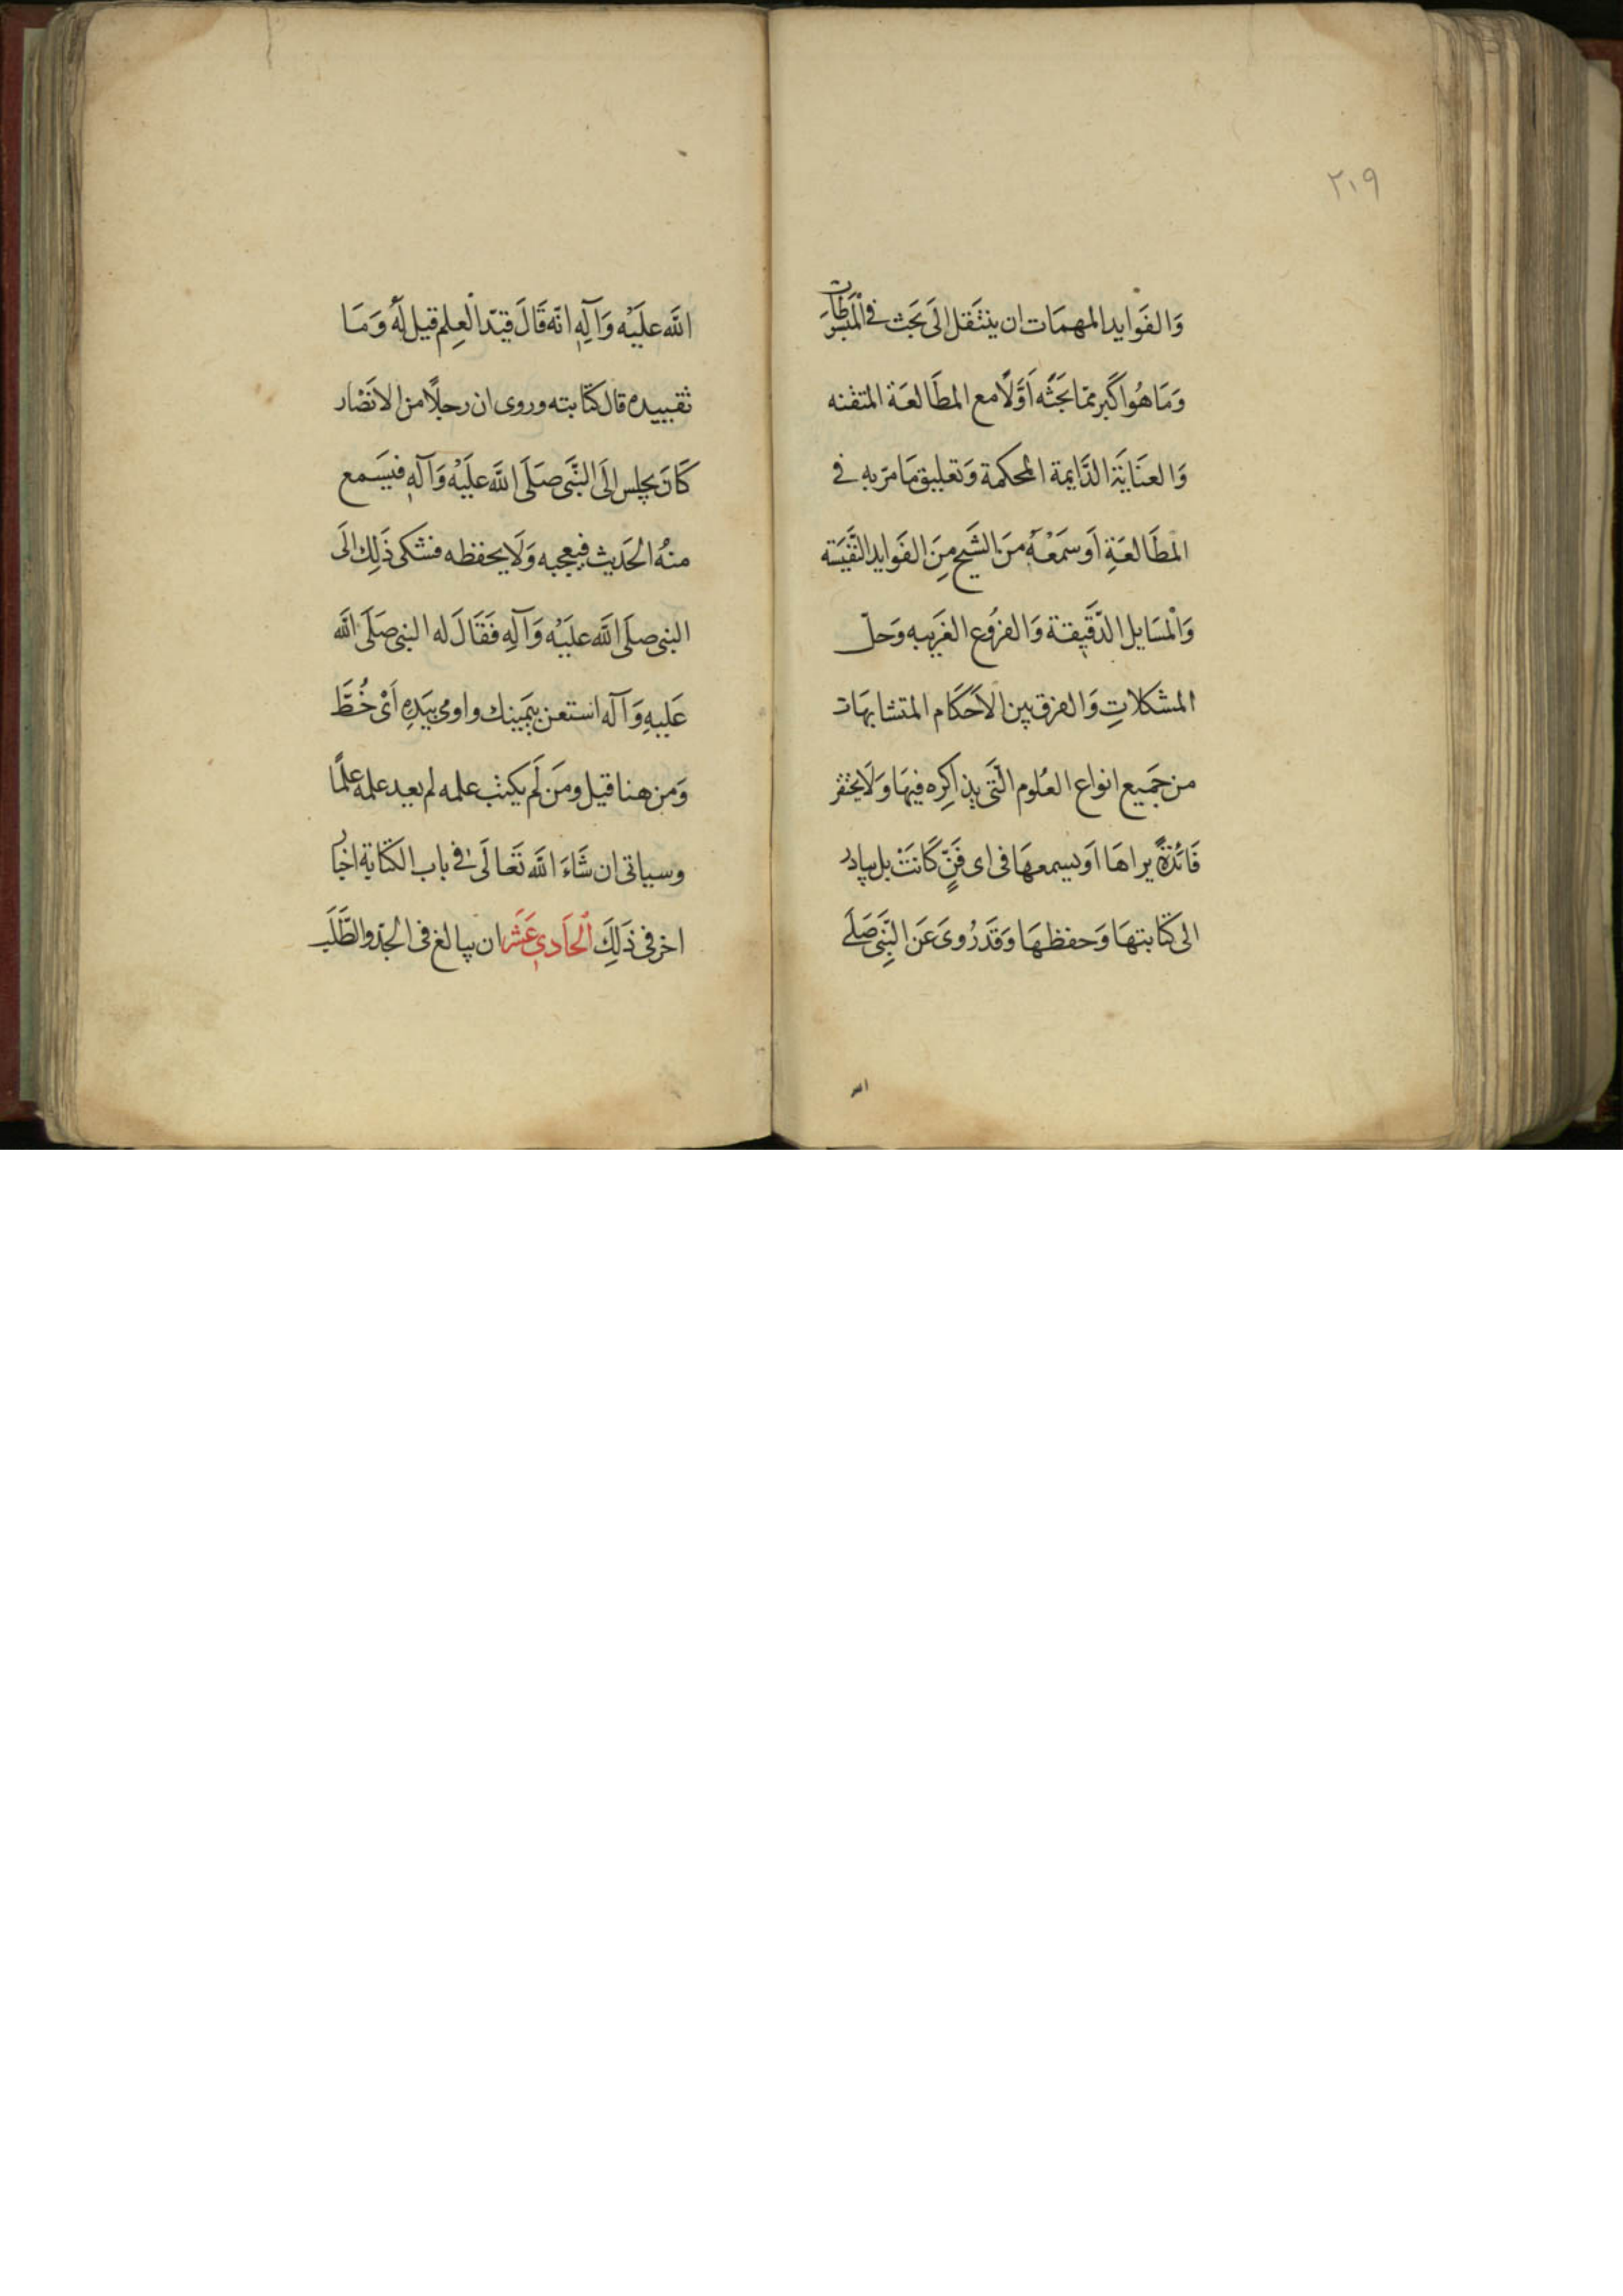 ٢١٩
وَالفَوايد المهمَات ان ينتَقل الَى بَحَث فى المبسُوطَات
وَمَا هُوا كَبر مما بَحَثَه اَوَّلًا مع المطَالعَة المتقنه
وَالعنَايَة الدَّايمة المحكمة وَتعليق مَا مرّ به فى
المطَالعَةِ اَو سمَعْهُ منَ الشَيخ مِنَ الفَوايد النَّفيَسَة
وَالْمسَايل الدّقَيقة وَالفرُوع الغَريبه وَحلّ
المشكلاتِ وَالفرق بين الاَحكَام المتشابهَات
من جَميع انواع العُلوم الّتَى يذاكِره فيهَا وَلَا يحتقر
فَائدَةً يراهَا اَو يسمعهَا فى اى فَنٍّ كَانَتْ بل يبادر
الى كتَابتهَا وَحفظهَا وَقَد رُوىَ عَن النَّبِى صَلَى
الله
اللَّه علَيْه وَآلِهِ انّه قَالَ قيّد الْعِلم قيل لَهُ وَمَا
تقييده قال كتَابته وروى ان رجلًا من الانَصْار
كَانَ يجلس الَى النَّبَى صَلَى اللَّه علَيْه وَآلهِ فيسَمع
منهُ الحَديث فيعجبه وَلَا يحفظه فشكى ذَلِك الَى
النبى صلَى اللَّه علَيْه وَآلِهِ فَقَالَ له النبى صَلَى اللَّه
عَليهِ وَآله استعن بيَمينك واومى بيَدِهِ اَىْ خُطَّ
وَمن هنا قيل ومَن لَم يكتب علمه لم يعد علمه علمًا
وسياتى ان شَاءَ اللَّه تَعالَى فى باب الكتَابة اخبار
اخر فى ذَلِكَ الْحَادىِ عَشَر ان يبالغ فى الجدّ والطَّلَب